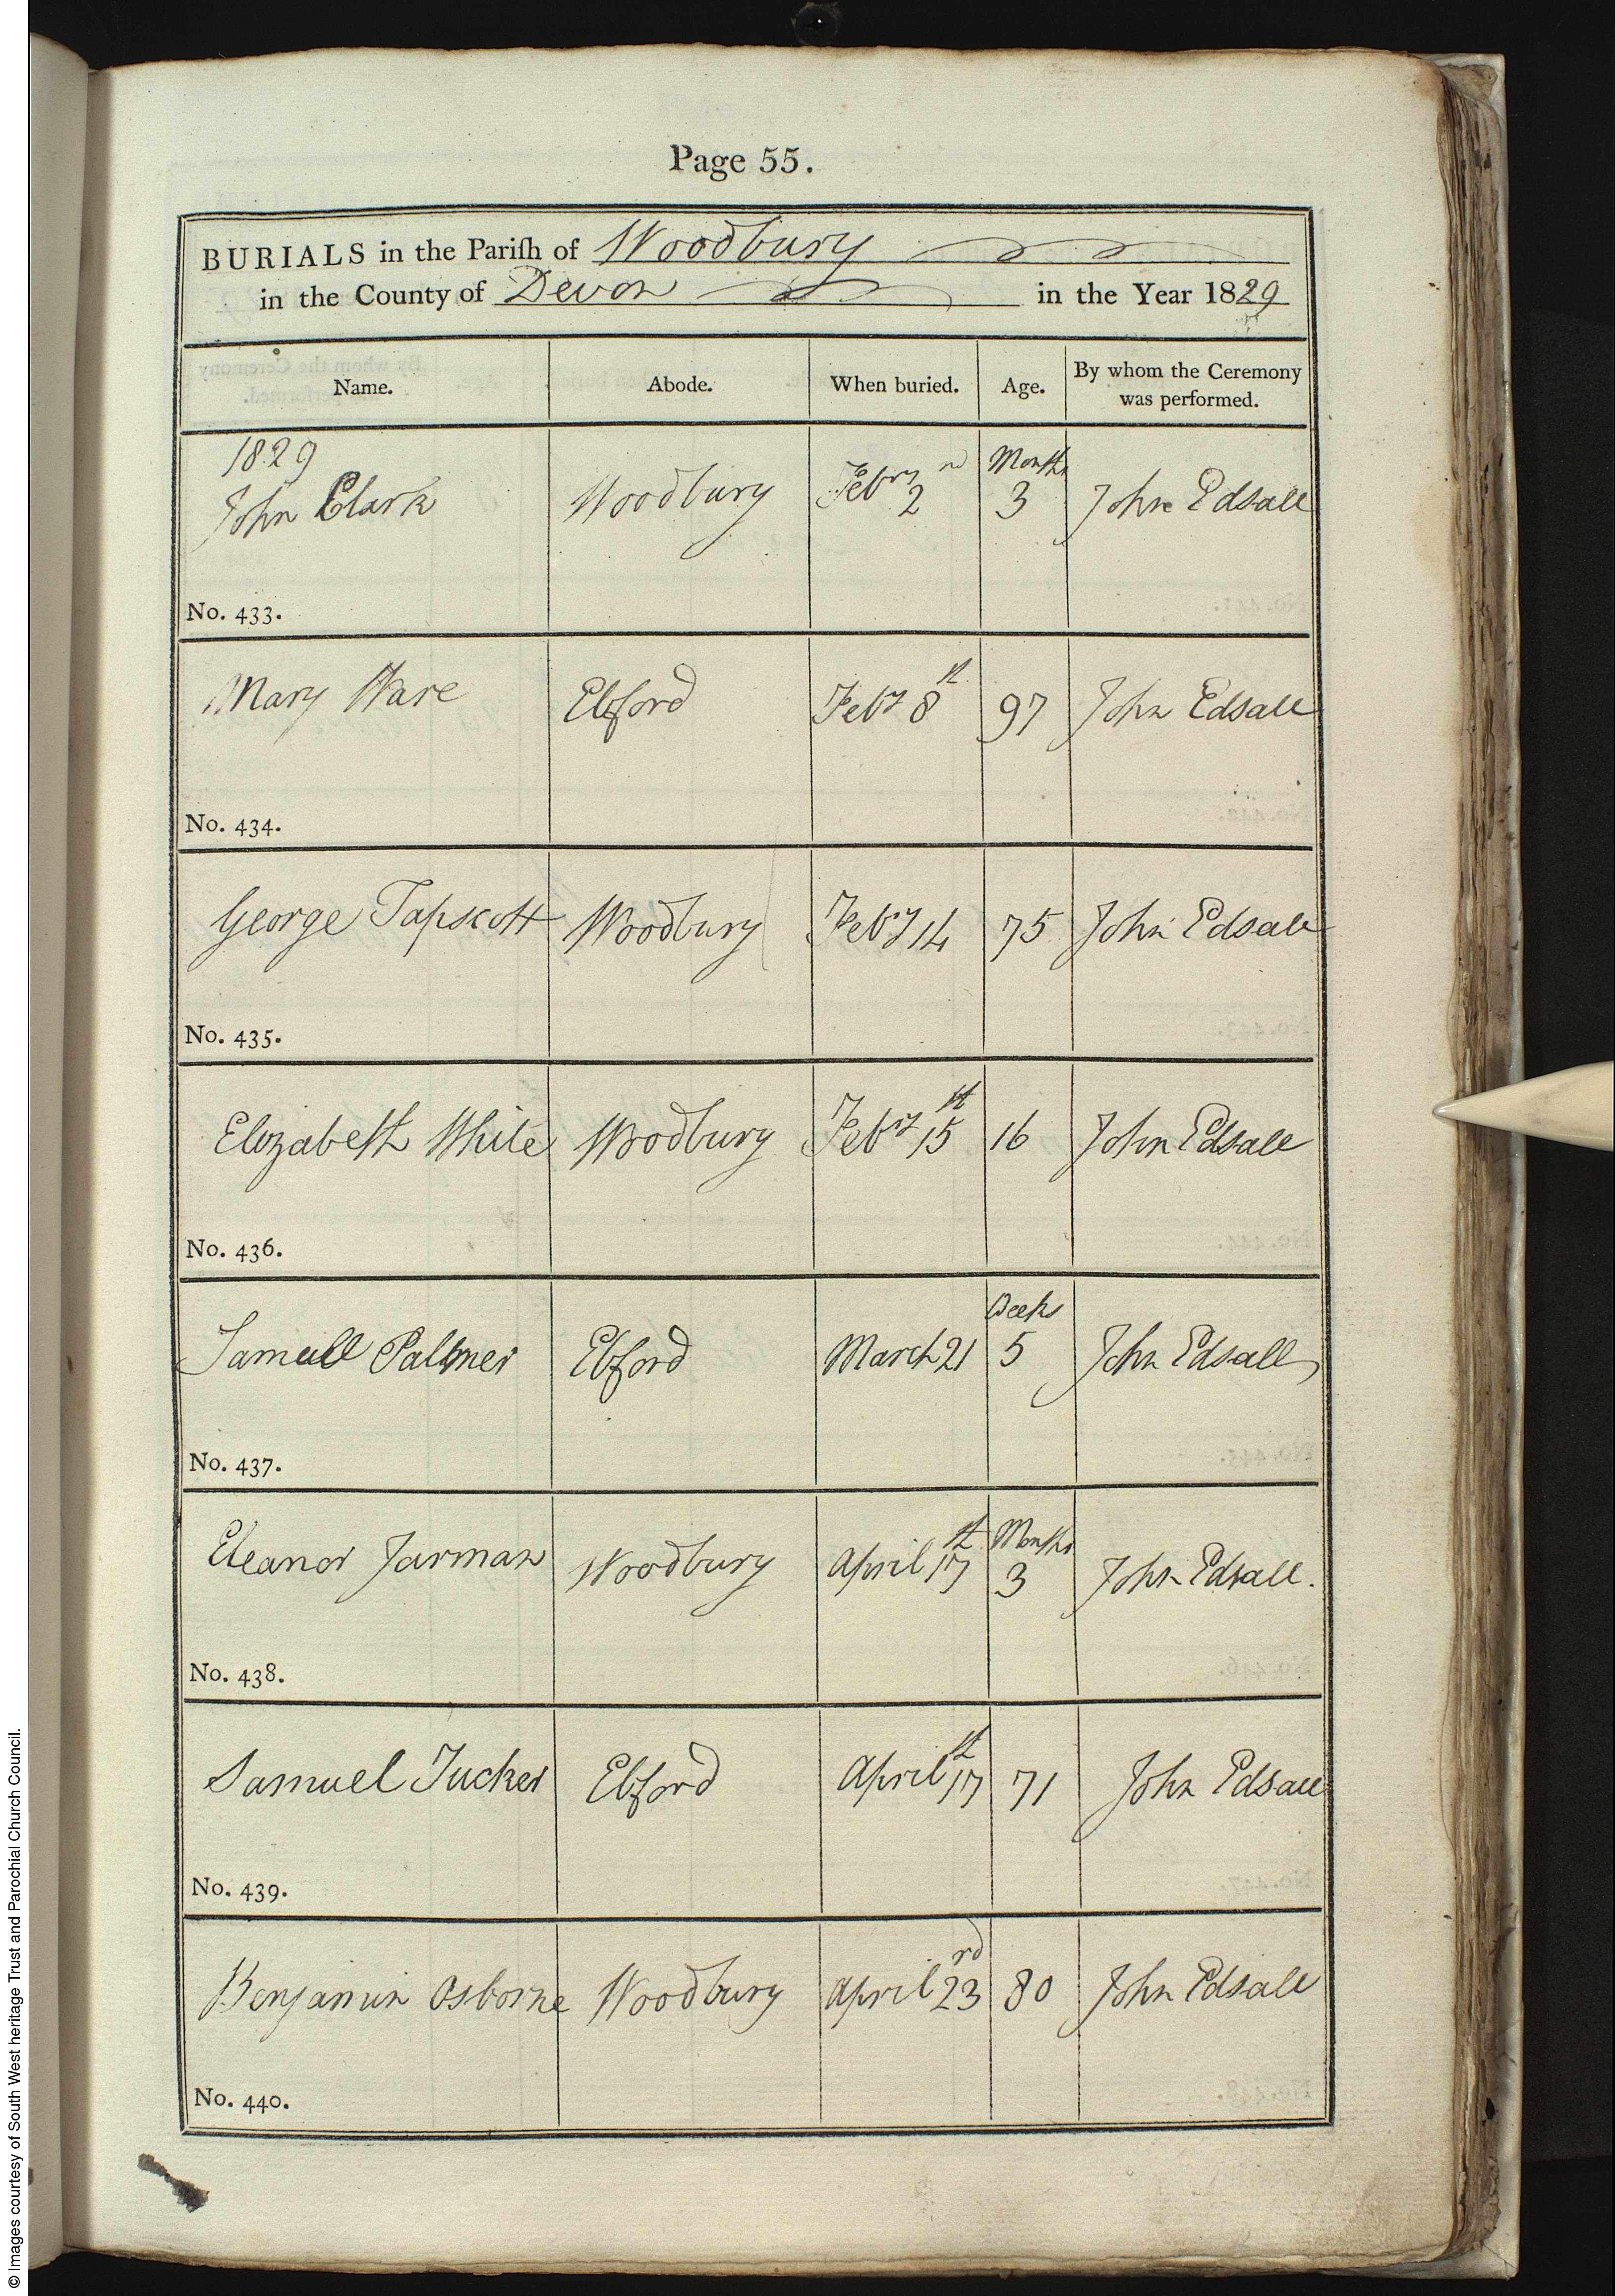 Page 55.
BURIALS in the Pariſh of Woodbury
in the County of Devon in the Year 1829
Name. Abode. When buried. Age. By whom the Ceremony was performed.
1829
John Clark Woodbury Febry 2nd Months 3 John Edsall
No. 433.
Mary Ware Ebford Feby 8th 97 John Edsall
No. 434.
George Tapscott Woodbury Feby 14 75 John Edsall
No. 435.
Elizabeth White Woodbury Febry 15th 16 John Edsall
No. 436.
Samuell Pallmer Ebford March 21 Weeks 5 John Edsall
No. 437.
Eleanor Jarman Woodbury April 17th Months 3 John Edsall.
No. 438.
Samuel Tucker Ebford April 17th 71 John Edsall
No. 439.
Benjamin Osborne Woodbury April 23rd 80 John Edsall
No. 440.
© Images courtesy of South West heritage Trust and Parochial Church Council.